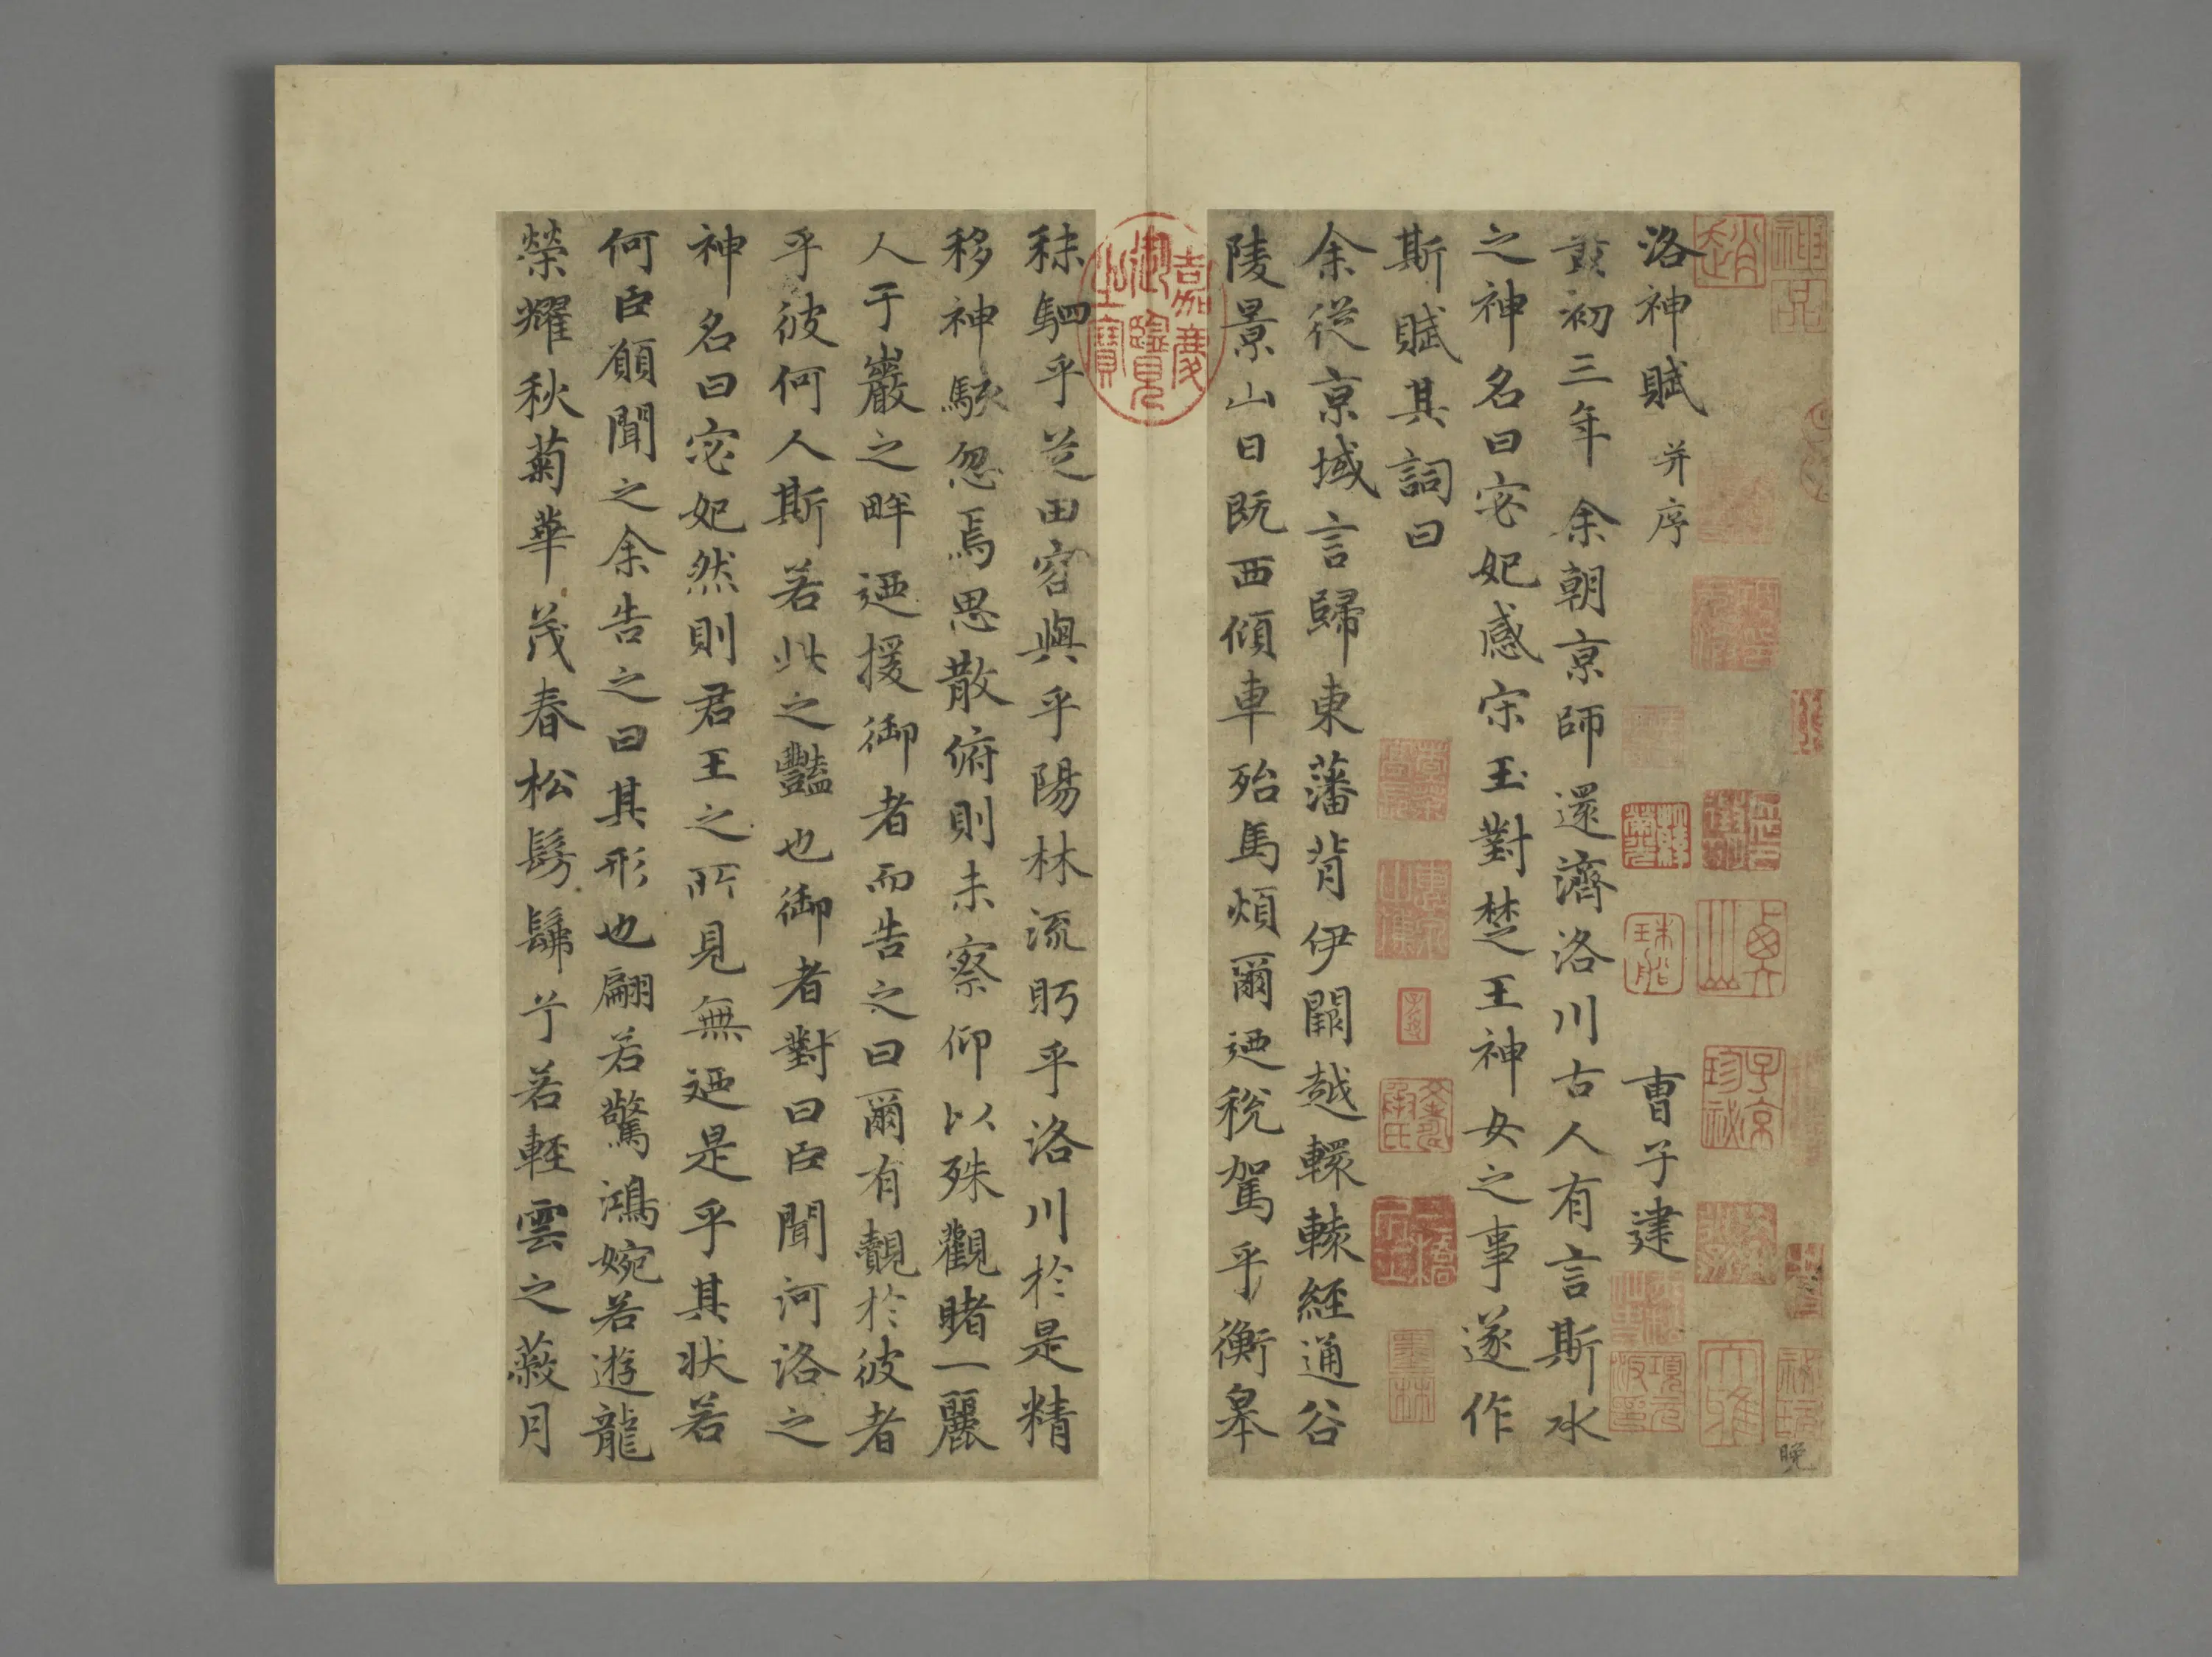 洛神賦 并序 曹子建
黃初三年余朝京師還濟洛川古人有言斯水
之神名曰宓妃感宋玉對楚王神女之事遂作
斯賦其詞曰
余從京域言歸東藩背伊闕越轘轅經通谷
陵景山日既西傾車殆馬煩爾迺稅駕乎蘅皋
秣駟乎芝田容與乎陽林流眄乎洛川於是精
移神駭忽焉思散俯則未察仰以殊觀睹一麗
人于巖之畔迺援御者而告之曰爾有覿於彼者
乎彼何人斯若此之豔也御者對曰臣聞河洛之
神名曰宓妃然則君王之所見無迺是乎其狀若
何臣願聞之余告之曰其形也翩若驚鴻婉若遊龍
榮耀秋菊華茂春松髣髴兮若輕雲之蔽月
嘉慶御覽之寶
晚